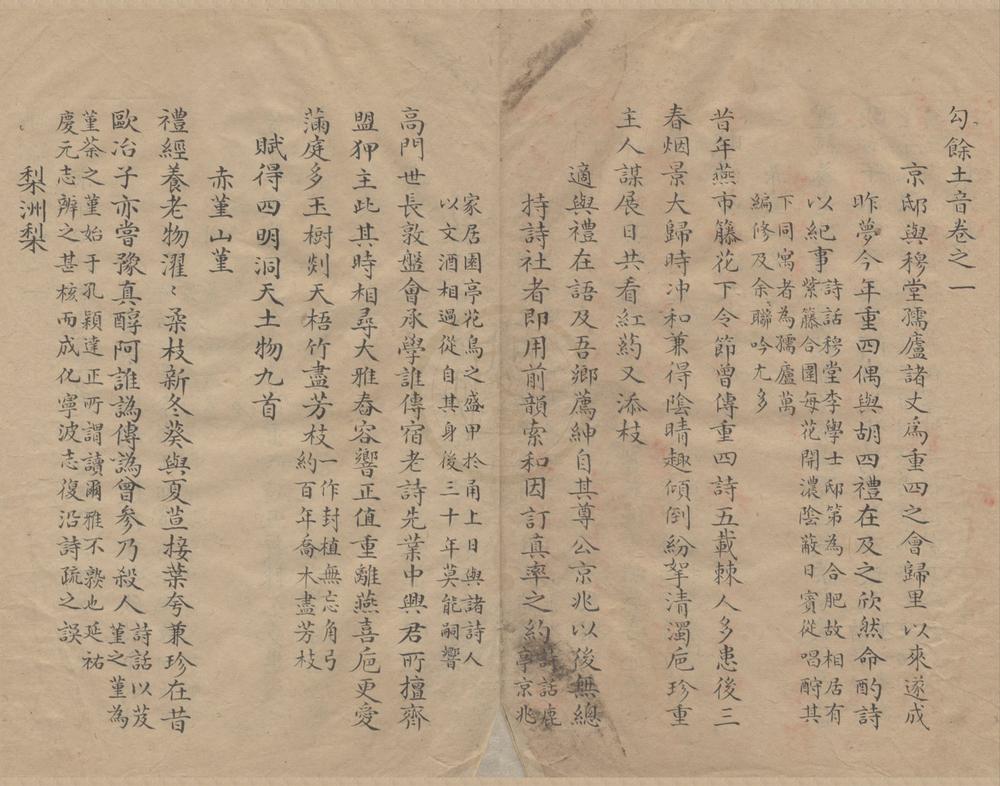 勾餘土音卷之一
京邸與穆堂孺廬諸丈爲重四之會歸里以來遂成
昨夢今年重四偶與胡四禮在及之欣然命酌詩
以紀事
詩話穆堂李學士邸第為合肥故相居有
紫藤合圍每花開濃陰蔽日賓從唱酧其
下同寓者為孺廬萬
編修及余聯吟尤多
昔年燕市籐花下令節曾傳重四詩五載棘人多患後三
春烟景大歸時冲和兼得陰晴趣傾倒紛拏清濁巵珍重
主人謀展日共看紅葯又添枝
適與禮在語及吾鄉薦紳自其尊公京兆以後無總
持詩社者即用前韻索和因訂真率之約
詩話鹿
亭京兆
家居園亭花鳥之盛甲於甬上日與諸詩人
以文酒相過從自其身後三十年莫能嗣響
高門世長敦盤會承學誰傳宿老詩先業中興君所擅齊
盟狎主此其時相尋大雅舂容響正值重離燕喜巵更愛
滿庭多玉樹剡天梧竹盡芳枝
一作封植無忘角弓
約百年喬木盡芳枝
賦得四明洞天土物九首
赤堇山堇
禮經養老物濯〻柔枝新冬葵與夏荁接葉夸兼珍在昔
歐冶子亦嘗豫真醇阿誰譌傳譌會參乃殺人
詩話以芨
堇之堇為
堇荼之堇始于孔穎達正所謂讀爾雅不熟也延祐
慶元志辨之甚核而成化寧波志復沿詩疏之誤
梨洲梨